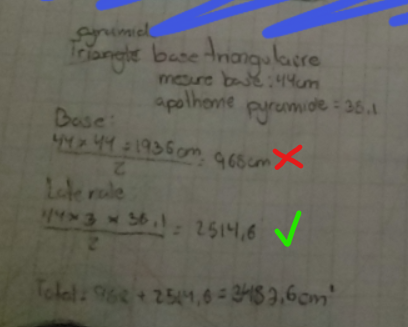 pyramid
Triangle base triangulaire
mesure base: 44cm
apothème pyramide = 38.1
Base:
44 x 44 = 1936 cm = 968cm
2
Laterale
44 x 3 x 38.1 = 2514,6
2
Total: 968 + 2514,6 = 3482,6cm²